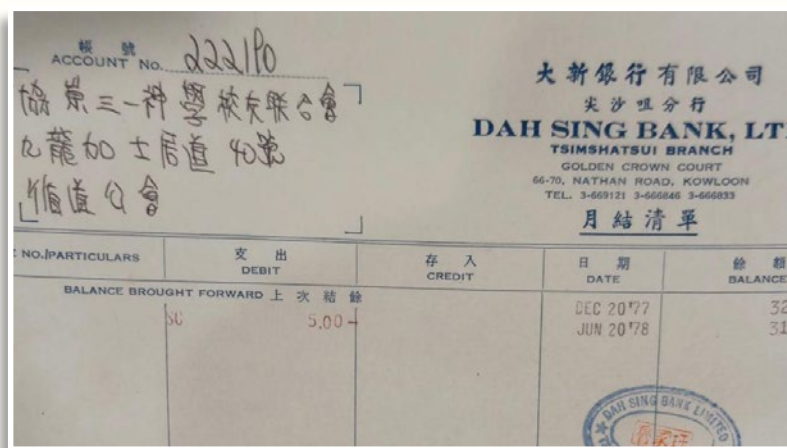 帳號
ACCOUNT No. 222190
協榮三一神學校友联合會
九龍加士居道 40號
循道公會
大新銀行有限公司
尖沙咀分行
DAH SING BANK, LT
TSIMSHATSUI BRANCH
GOLDEN CROWN COURT
66-70, NATHAN ROAD, KOWLOON
TEL. 3-669121 3-666846 3-666833
月結清單
NO./PARTICULARS
支出
DEBIT
存入
CREDIT
日期
DATE
餘額
BALANCE
BALANCE BROUGHT FORWARD 上次結餘
DEC 20'77 32
SC 5.00 JUN 20'78 31
DAH SING BANK LIMITED